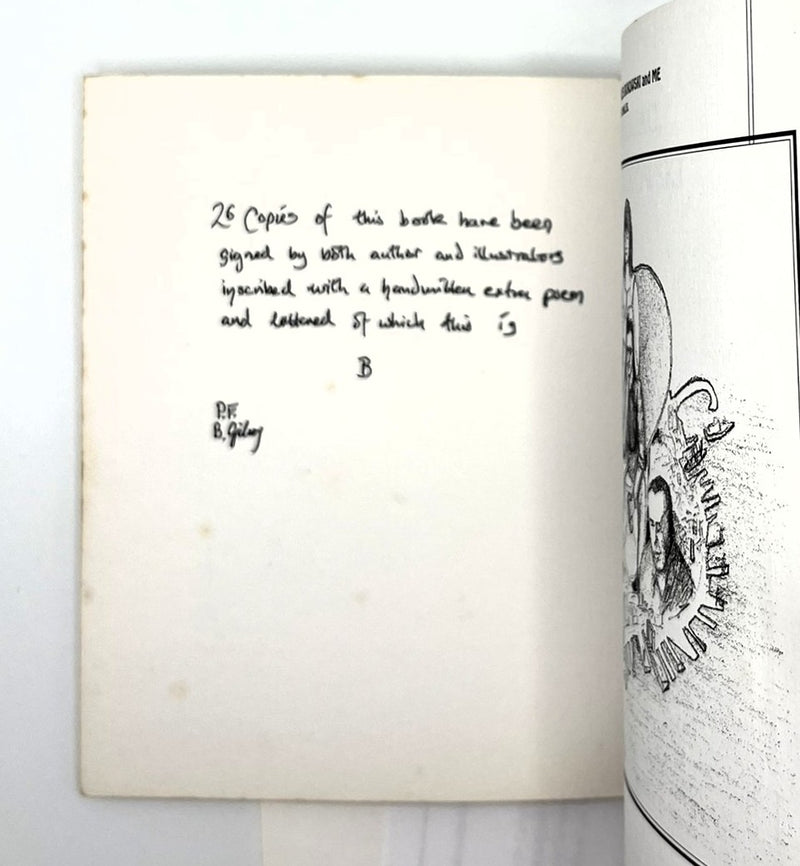 26 Copies of this book have been
signed by both author and illustrators
inscribed with a handwritten extra poem
and lettered of which this is
B
P.F.
B. Gilroy
and ME